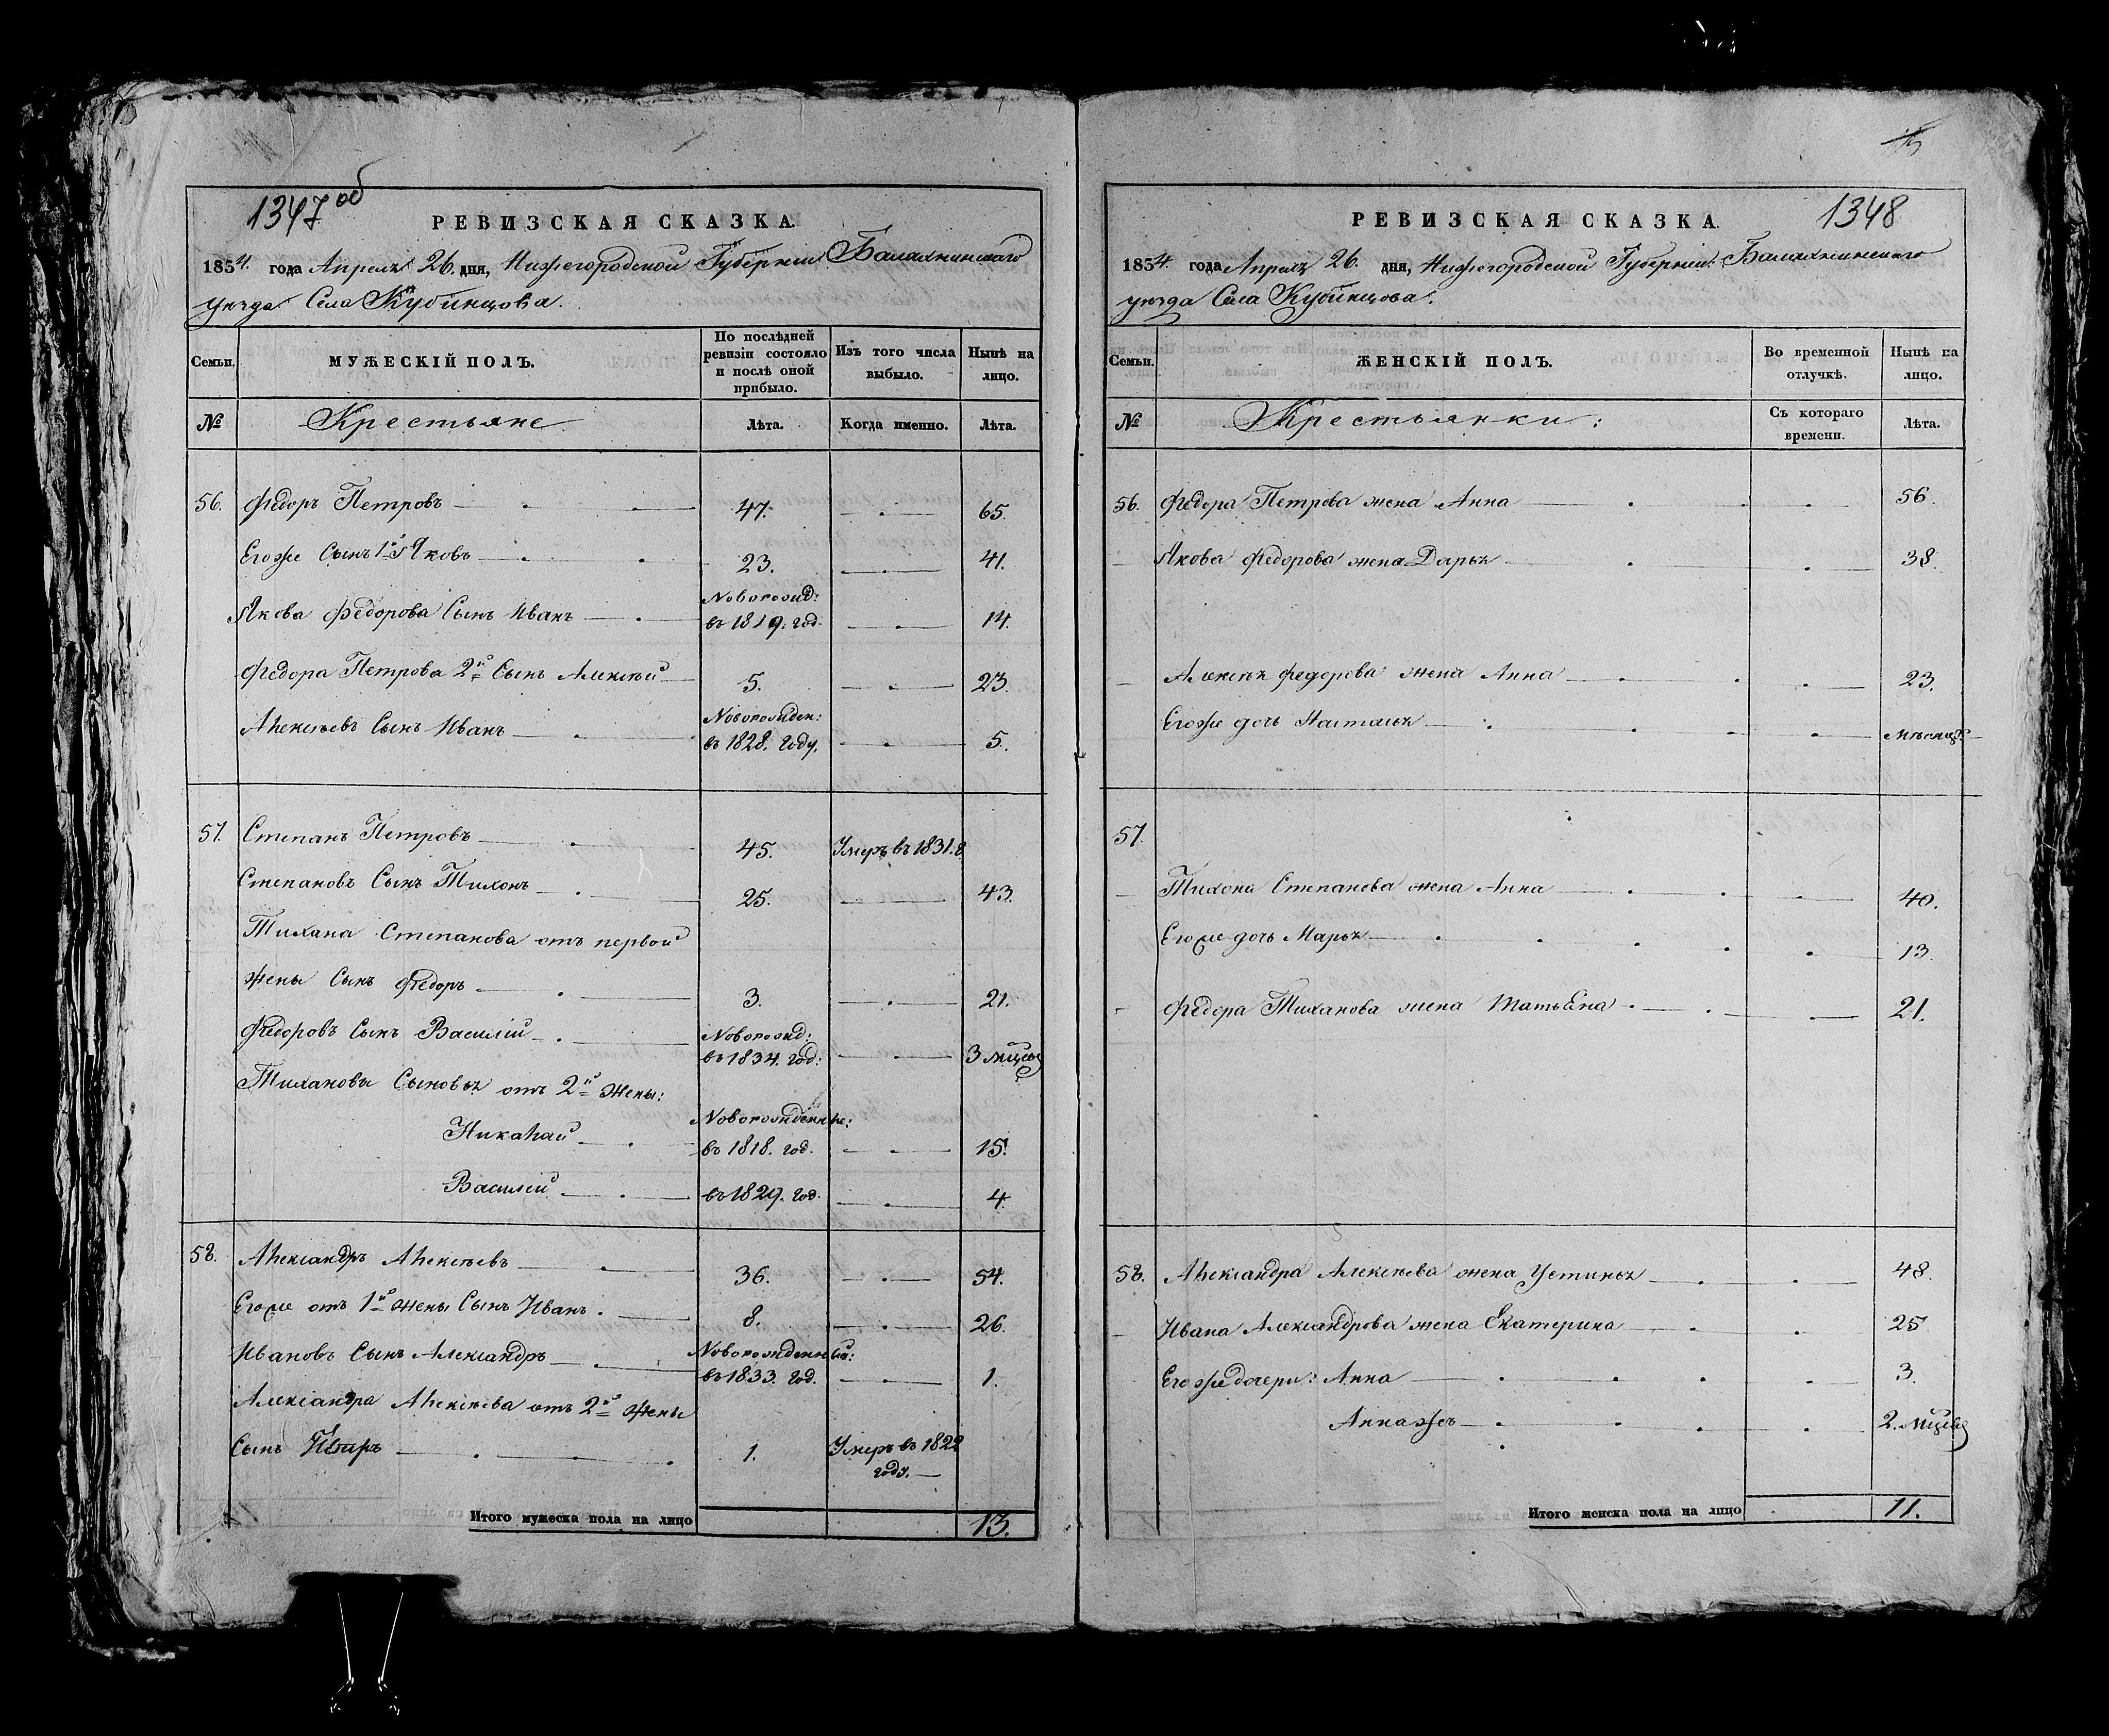 1347 об
РЕВИЗСКАЯ СКАЗКА.
1834. года Апреля 26. дня, Нижегородской Губерніи Балахнинскаго
уѣзда Села Кубинцова.
Семьи. МУЖЕСКІЙ ПОЛЪ. По послѣдней ревизіи состояло и послѣ оной прибыло. Изъ того числа выбыло. Нынѣ на лицо.
№ Крестьяне Лѣта. Когда именно. Лѣта.
56. Федоръ Петровъ 47. 65.
Егоже Сынъ 1й Яковъ 23. 41.
Якова Федорова Сынъ Иванъ Новорожд: въ 1819. год. 14.
Федора Петрова 2й Сынъ Алексѣй 5. 23.
Алексѣевъ Сынъ Иванъ Новорожден: въ 1828. году. 5.
57. Степанъ Петровъ 45. Умеръ въ 1831. г
Степановъ Сынъ Тихонъ 25. 43.
Тихана Степанова отъ первой
жены Сынъ Федоръ 3. 21.
Федоровъ Сынъ Василій Новорожд: въ 1834. год: 3 мцсѧ
Тихановы Сыновья отъ 2й Жены:
Никалай Новорожденные: въ 1818. год. 15.
Василій въ 1829. год. 4.
58. Александръ Алексѣевъ 36. 54.
Егоже отъ 1й Жены Сынъ Иванъ. 8. 26.
Ивановъ Сынъ Александръ Новорожденный: въ 1833. год. 1.
Александра Алексѣева отъ 2й Жены
Сынъ Петръ 1. Умеръ въ 1822 году.
Итого мужеска пола на лицо 13.
1348
РЕВИЗСКАЯ СКАЗКА.
1834. года Апреля 26. дня, Нижегородской Губерніи Балахнинскаго
уѣзда Села Кубинцова.
Семьи. ЖЕНСКІЙ ПОЛЪ. Во временной отлучкѣ. Нынѣ на лицо.
№ Крестьянки: Съ котораго времени. Лѣта.
56. Федора Петрова жена Анна 56.
Якова Федорова жена Дарья 38.
Алексѣя Федорова жена Анна 23.
Егоже дочь Наталья
57.
Тихона Степанова жена Анна 40.
Егоже дочь Марья 13.
Федора Тиханова жена Татьена 21.
58. Александра Алексѣева жена Устинья 48.
Ивана Александрова жена Екатерина 25
Егоже дочери: Анна 3.
Аннажъ 2. мцсѧ
Итого женска пола на лицо 11.